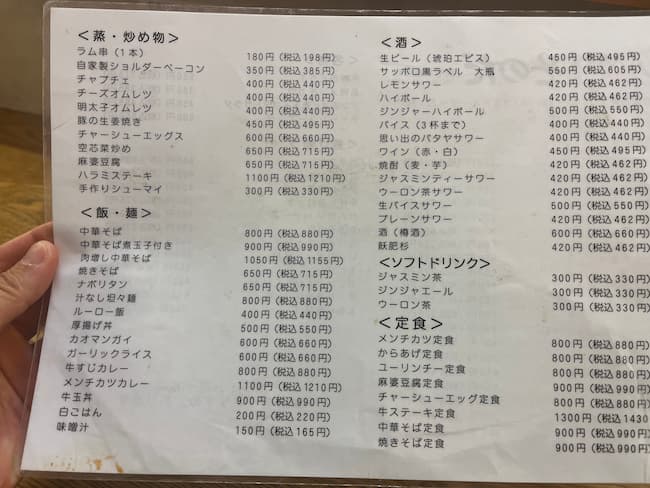 ＜蒸・炒め物＞
ラム串（1本） 180円（税込198円）
自家製ショルダーベーコン 350円（税込385円）
チャプチェ 400円（税込440円）
チーズオムレツ 400円（税込440円）
明太子オムレツ 400円（税込440円）
豚の生姜焼き 450円（税込495円）
チャーシューエッグス 600円（税込660円）
空芯菜炒め 650円（税込715円）
麻婆豆腐 650円（税込715円）
ハラミステーキ 1100円（税込1210円）
手作りシューマイ 300円（税込330円）
＜飯・麺＞
中華そば 800円（税込880円）
中華そば煮玉子付き 900円（税込990円）
肉増し中華そば 1050円（税込1155円）
焼きそば 650円（税込715円）
ナポリタン 650円（税込715円）
汁なし坦々麺 800円（税込880円）
ルーロー飯 400円（税込440円）
厚揚げ丼 500円（税込550円）
カオマンガイ 600円（税込660円）
ガーリックライス 600円（税込660円）
牛すじカレー 800円（税込880円）
メンチカツカレー 1100円（税込1210円）
牛玉丼 900円（税込990円）
白ごはん 200円（税込220円）
味噌汁 150円（税込165円）
＜酒＞
生ビール（琥珀エビス） 450円（税込495円）
サッポロ黒ラベル 大瓶 550円（税込605円）
レモンサワー 420円（税込462円）
ハイボール 420円（税込462円）
ジンジャーハイボール 500円（税込550円）
バイス（3杯まで） 400円（税込440円）
思い出のバタヤサワー 400円（税込440円）
ワイン（赤・白） 450円（税込495円）
焼酎（麦・芋） 420円（税込462円）
ジャスミンティーサワー 420円（税込462円）
ウーロン茶サワー 420円（税込462円）
生バイスサワー 500円（税込550円）
プレーンサワー 420円（税込462円）
酒（樽酒） 600円（税込660円）
飫肥杉 420円（税込462円）
＜ソフトドリンク＞
ジャスミン茶 300円（税込330円）
ジンジャエール 300円（税込330円）
ウーロン茶 300円（税込330円）
＜定食＞
メンチカツ定食 800円（税込880円）
からあげ定食 800円（税込880円）
ユーリンチー定食 800円（税込880円）
麻婆豆腐定食 900円（税込990円）
チャーシューエッグ定食 800円（税込880円）
牛ステーキ定食 1300円（税込1430
中華そば定食 900円（税込990円）
焼きそば定食 900円（税込990円）